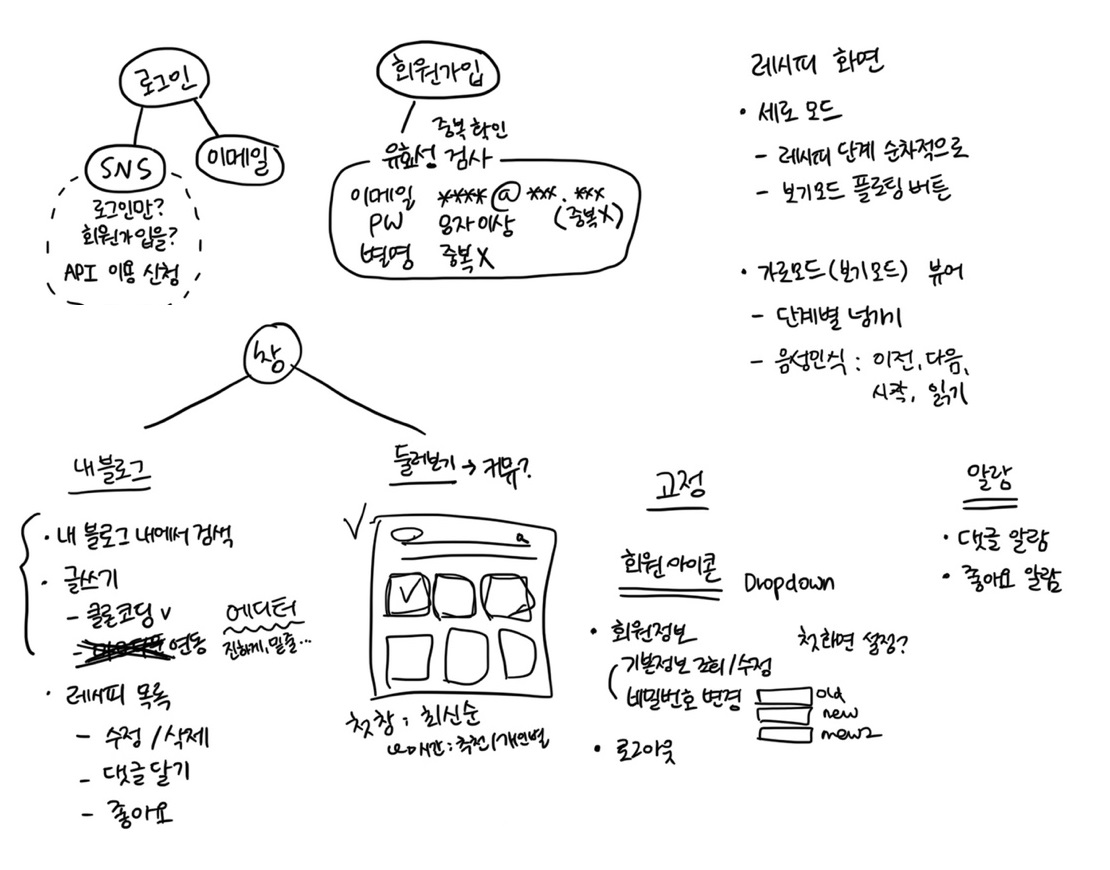 로그인
SNS
이메일
로그인만?
회원가입을?
API 이용 신청
회원가입
중복 확인
유효성 검사
이메일 ****@***.***
(중복X)
PW 8자 이상
별명 중복X
레시피 화면
• 세로 모드
- 레시피 단계 순차적으로
- 보기모드 플로팅 버튼
• 가로모드(보기모드) 뷰어
- 단계별 넘기기
- 음성인식 : 이전, 다음,
시작, 읽기
창
내 블로그
• 내 블로그 내에서 검색
• 글쓰기
- 클론코딩 v
- 연동
에디터
진하게, 밑줄...
• 레시피 목록
- 수정 / 삭제
- 댓글 달기
- 좋아요
둘러보기 → 커뮤?
첫 창 : 최신순
시간 : 추천/개인별
고정
회원 아이콘
Dropdown
• 회원정보
기본정보 조회/수정
비밀번호 변경
old
new
new2
첫화면 설정?
• 로그아웃
알람
• 댓글 알람
• 좋아요 알람